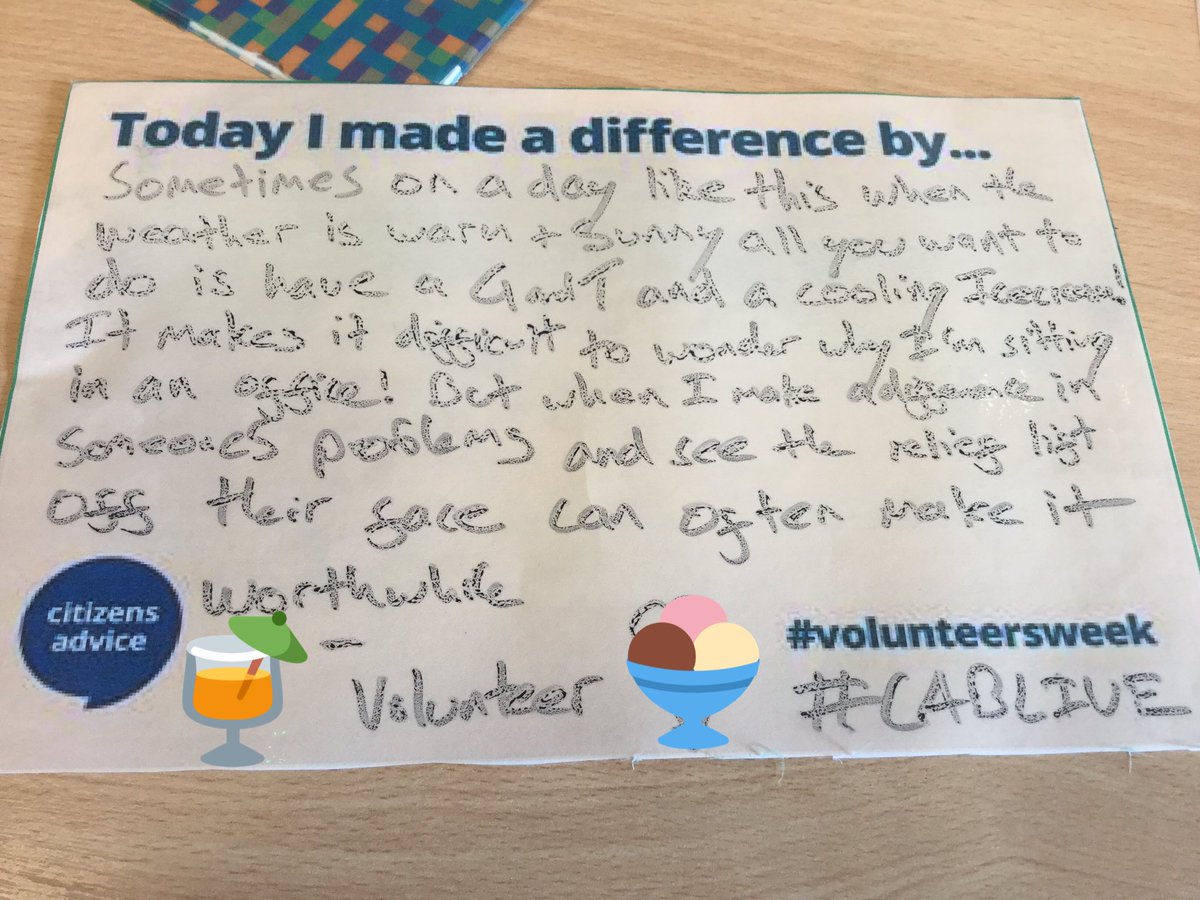 Today I made a difference by...
Sometimes on a day like this when the
weather is warm + Sunny all you want to
do is have a G and T and a cooling Icecream!
It makes it difficult to wonder why I'm sitting
in an office! But when I make a difference in
someones problems and see the relief light
off their face can often make it
worthwhile
citizens
advice
#volunteersweek
Volunteer
#CABLIVE